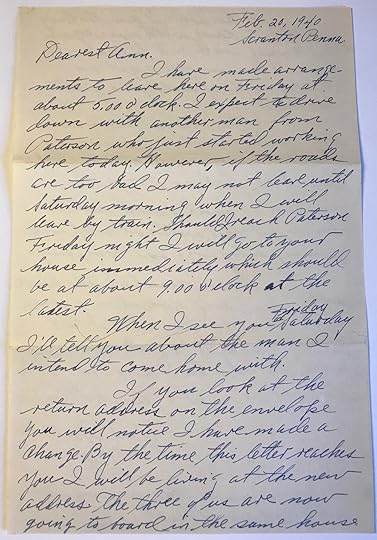 Feb. 20, 1940
Scranton Penna.
Dearest Ann.
I have made arrange-
ments to leave here on Friday at
about 5.00 O'clock. I expect to drive
down with another man from
Paterson who just started working
here today. However, if the roads
are too bad I may not leave until
Saturday morning when I will
leave by train. Should I reach Paterson
Friday night I will go to your
house immediately which should
be at about 9.00 O'clock at the
latest.
When I see you Friday Saturday
I'll tell you about the man I
intend to come home with.
If you look at the
return address on the envelope
you will notice I have made a
change. By the time this letter reaches
you I will be living at the new
address. The three of us are now
going to board in the same house